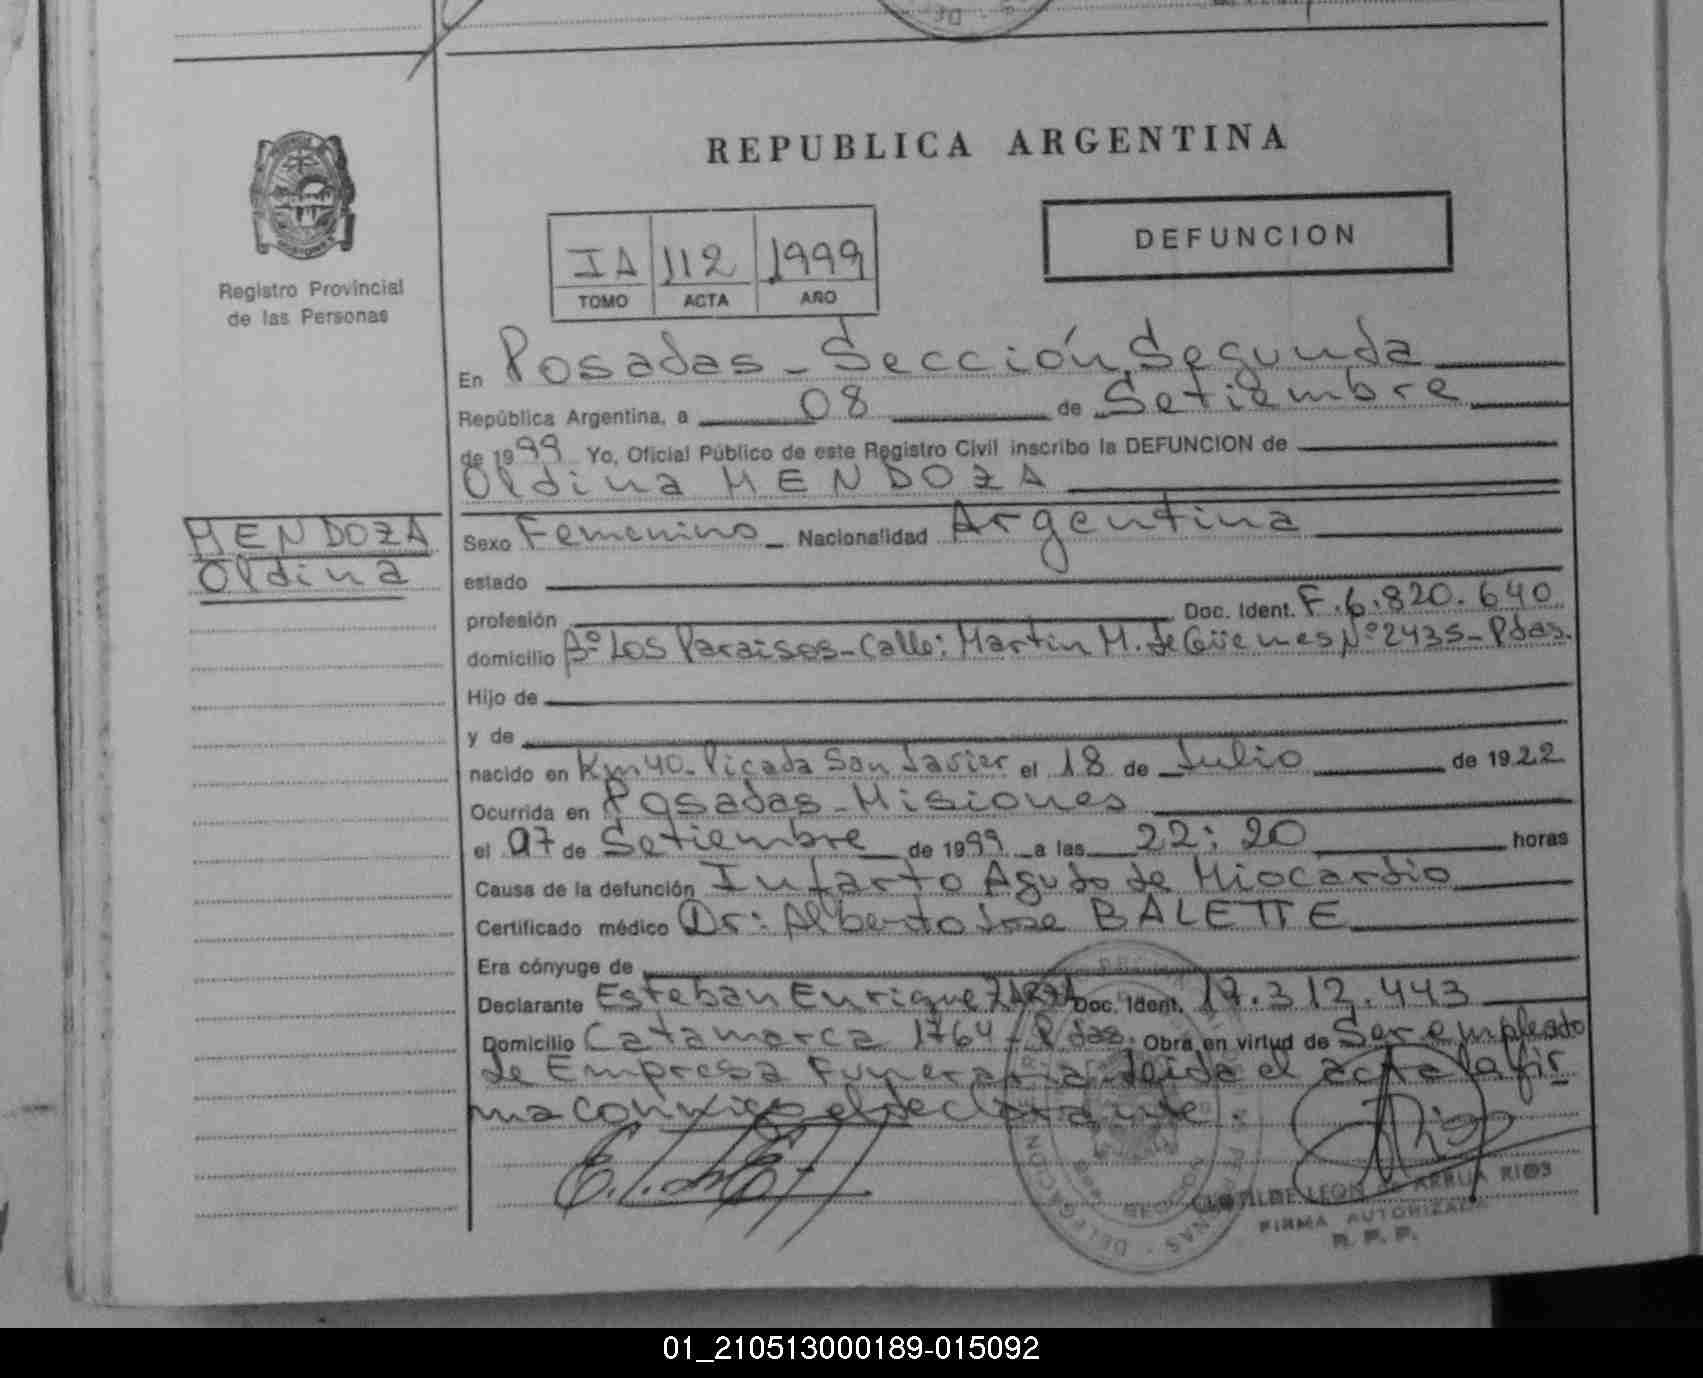 REPUBLICA ARGENTINA
DEFUNCION
IA 112 1999
TOMO ACTA AÑO
Registro Provincial
de las Personas
MENDOZA
Oldina
En Posadas - Sección Segunda
República Argentina, a 08 de Setiembre
de 1999 Yo, Oficial Público de este Registro Civil inscribo la DEFUNCION de
Oldina MENDOZA
Sexo Femenino Nacionalidad Argentina
estado
profesión Doc. Ident. F.6.820.640
domicilio Bº Los Paraisos - Calle: Martin M. de Güemes Nº 2435 - Pdas.
Hijo de
y de
nacido en Km 40 - Picada San Javier el 18 de Julio de 1922
Ocurrida en Posadas - Misiones
el 07 de Setiembre de 1999 a las 22:20 horas
Causa de la defunción Infarto Agudo de Miocardio
Certificado médico Dr: Alberto Jose BALETTE
Era cónyuge de
Declarante Esteban Enrique Doc. Ident. 17.312.443
Domicilio Catamarca 1764 - Pdas. Obra en virtud de Ser empleado
de Empresa Funeraria - leida el acta la fir
ma conmigo el declarante
CLOTILDE LEON DE ARRUA RIOS
FIRMA AUTORIZADA
R. P. P.
01_210513000189-015092